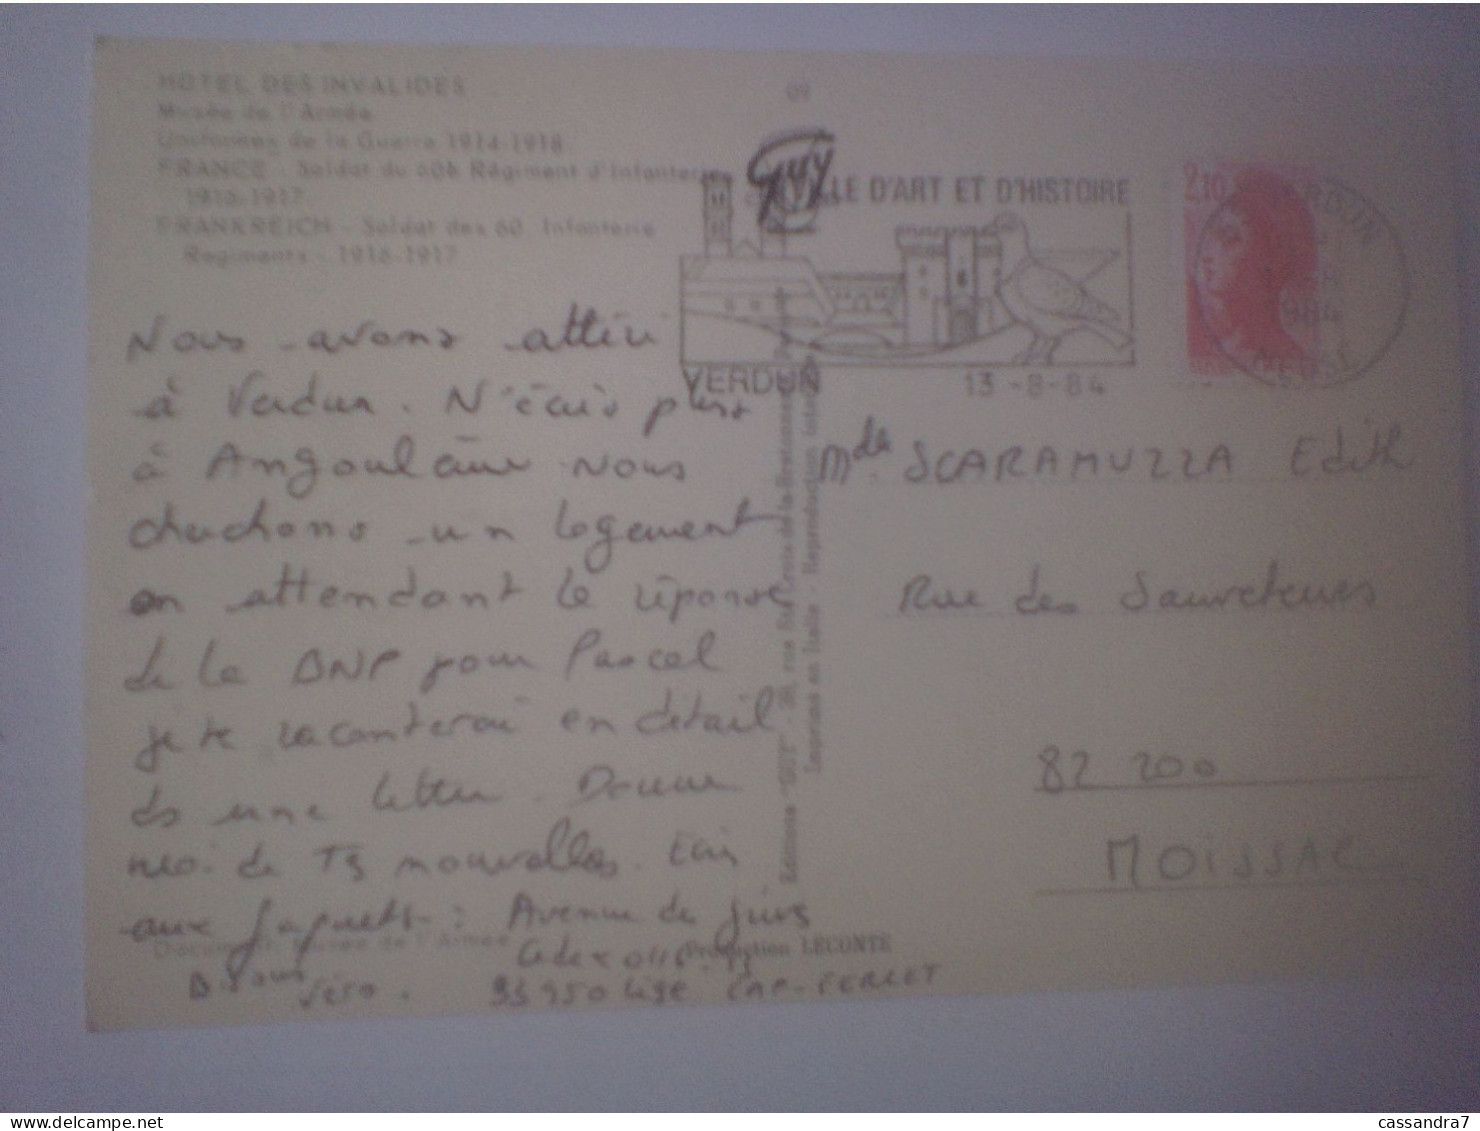 HOTEL DES INVALIDES
Musée de l'Armée
Uniformes de la Guerre 1914-1918
FRANCE - Soldat du 60è Régiment d'Infanterie
1916-1917
FRANKREICH - Soldat des 60. Infanterie
Regiments - 1916-1917
09
Guy
VILLE D'ART ET D'HISTOIRE
VERDUN
13-8-84
2,10
VERDUN
1984
MEUSE
Nous avons atterri
à Verdun. N'écris plus
à Angoulême Nous
cherchons un logement
en attendant la réponse
de la BNP pour Pascal
je te raconterai en détail
ds une lettre. Donne
moi de Ts nouvelles. Ecris
aux Jaquets : Avenue du
33950 Lège CAP-FERRET
Bisous
Véro.
Editions "GUY" - 20, rue Ste Croix-de-la-Bretonnerie
Imprimé en Italie - Reproduction
Document Musée de l'Armée
Production LECONTE
Mdle SCARAMUZZA Edith
Rue des Sauveteurs
82 200
MOISSAC
cassandra7